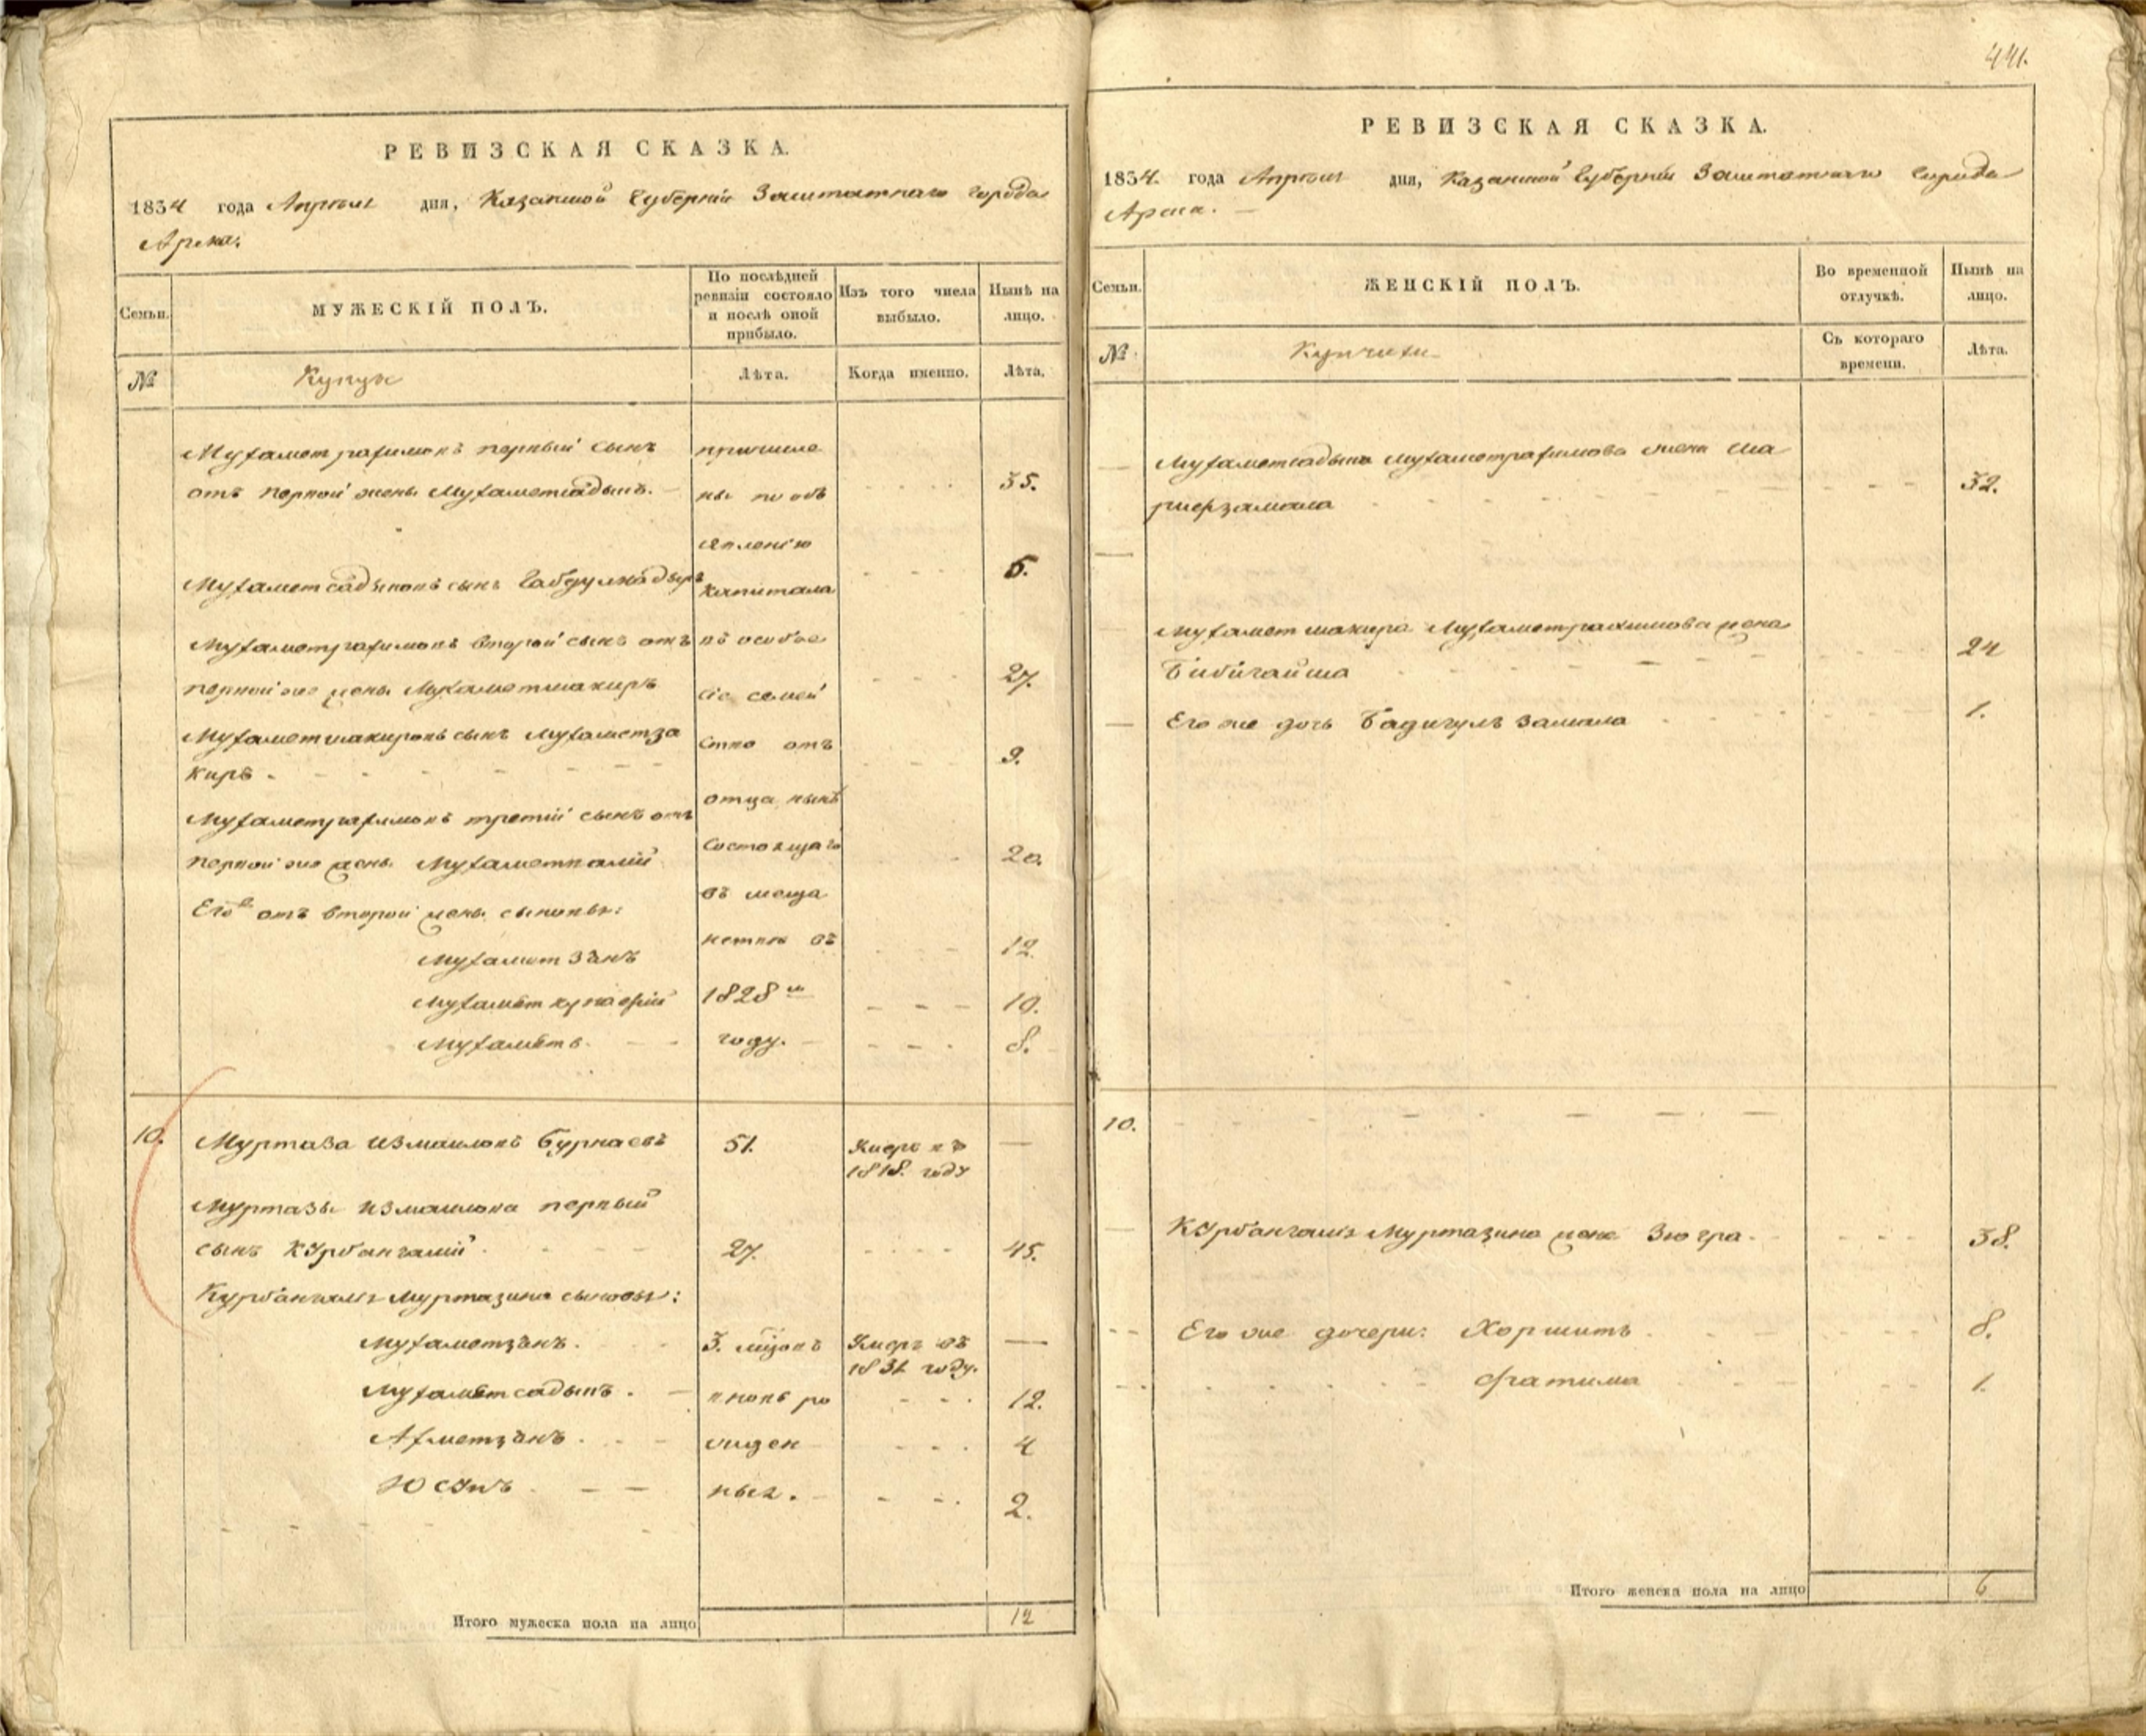 441.
РЕВИЗСКАЯ СКАЗКА.
1834 года Апреля дня, Казанской Губернии Заштатнаго города
Арска.
Семьи.
МУЖЕСКІЙ ПОЛЪ.
По послѣдней ревизіи состояло и послѣ оной прибыло.
Изъ того числа выбыло.
Нынѣ на лицо.
№
Лѣта.
Когда именно.
Лѣта.
Мухаметрахимовъ первый сынъ
отъ первой жены Мухаметсадыкъ.
35.
Мухаметсадыковъ сынъ Габдулкадыръ
5.
Мухаметрахимовъ второй сынъ отъ
первой же жены Мухаметшакиръ
27.
Мухаметшакировъ сынъ Мухаметза
киръ
9.
Мухаметрахимовъ третій сынъ отъ
первой же жены Мухаметвалій
20.
Его отъ второй жены сыновья:
Мухаметзянъ
12.
Мухамет
10.
Мухаметъ
8.
причисле
ны по объ
явленію
капитала
въ особое
сіе семей
ство отъ
отца нынѣ
состоящаго
въ меща
нствѣ въ
1828 м
году.
10.
Муртаза Измаиловъ Бурнаевъ
51.
Умеръ въ
1818. году
Муртазы Измаилова первый
сынъ Курбангалій
27.
45.
Курбангалія Муртазина сыновья:
Мухаметзянъ.
3. мѣсяцъ
Умеръ въ
1831 году.
Мухаметсадыкъ.
вновь ро
12.
Ахметзянъ.
жден
4
Юсупъ
ныя.
2.
Итого мужеска пола на лицо
12
РЕВИЗСКАЯ СКАЗКА.
1834. года Апреля дня, Казанской Губерніи Заштатнаго города
Арска.
Семьи.
ЖЕНСКІЙ ПОЛЪ.
Во временной отлучкѣ.
Нынѣ на лицо.
№
Съ котораго времени.
Лѣта.
Мухаметсадыка Мухаметрахимова жена Ша
рифзамала
32.
Мухаметшакира Мухаметрахимова жена
Бибигайша
24
Его же дочь Бадигулъ Замала
1.
10.
Курбангалія Муртазина жена Зюгра
38.
Его же дочери: Хоршитъ
8.
Фатима
1.
Итого женска пола на лицо
6